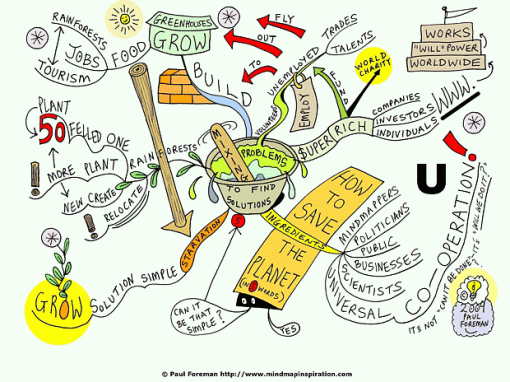 RAINFORESTS
JOBS
TOURISM
FOOD
GREENHOUSES
GROW
BUILD
FLY
OUT
TO
UNEMPLOYED
TRADES
TALENTS
VOLUNTEERS
EMPLOY
FUND
WORLD
CHARITY
WORKS
"WILL" POWER
WORLDWIDE
$UPER RICH
COMPANIES
INVESTORS
INDIVIDUALS
WWW.
PLANT
50
FELLED ONE
!
MORE PLANT
RAINFORESTS
NEW CREATE
RELOCATE
!
MIXING
PROBLEMS
TO FIND
SOLUTIONS
STARVATION
SOLUTION SIMPLE
GROW
INGREDIENTS
HOW
TO
SAVE
THE
PLANET
WORDS)
CAN IT
BE THAT
SIMPLE?
YES
MINDMAPPERS
POLITICIANS
PUBLIC
BUSINESSES
SCIENTISTS
UNIVERSAL
CO-OPERATION
U
!
IT'S NOT "CAN IT BE DONE?"
2009
PAUL
FOREMAN
© Paul Foreman http://www.mindmapinspiration.com